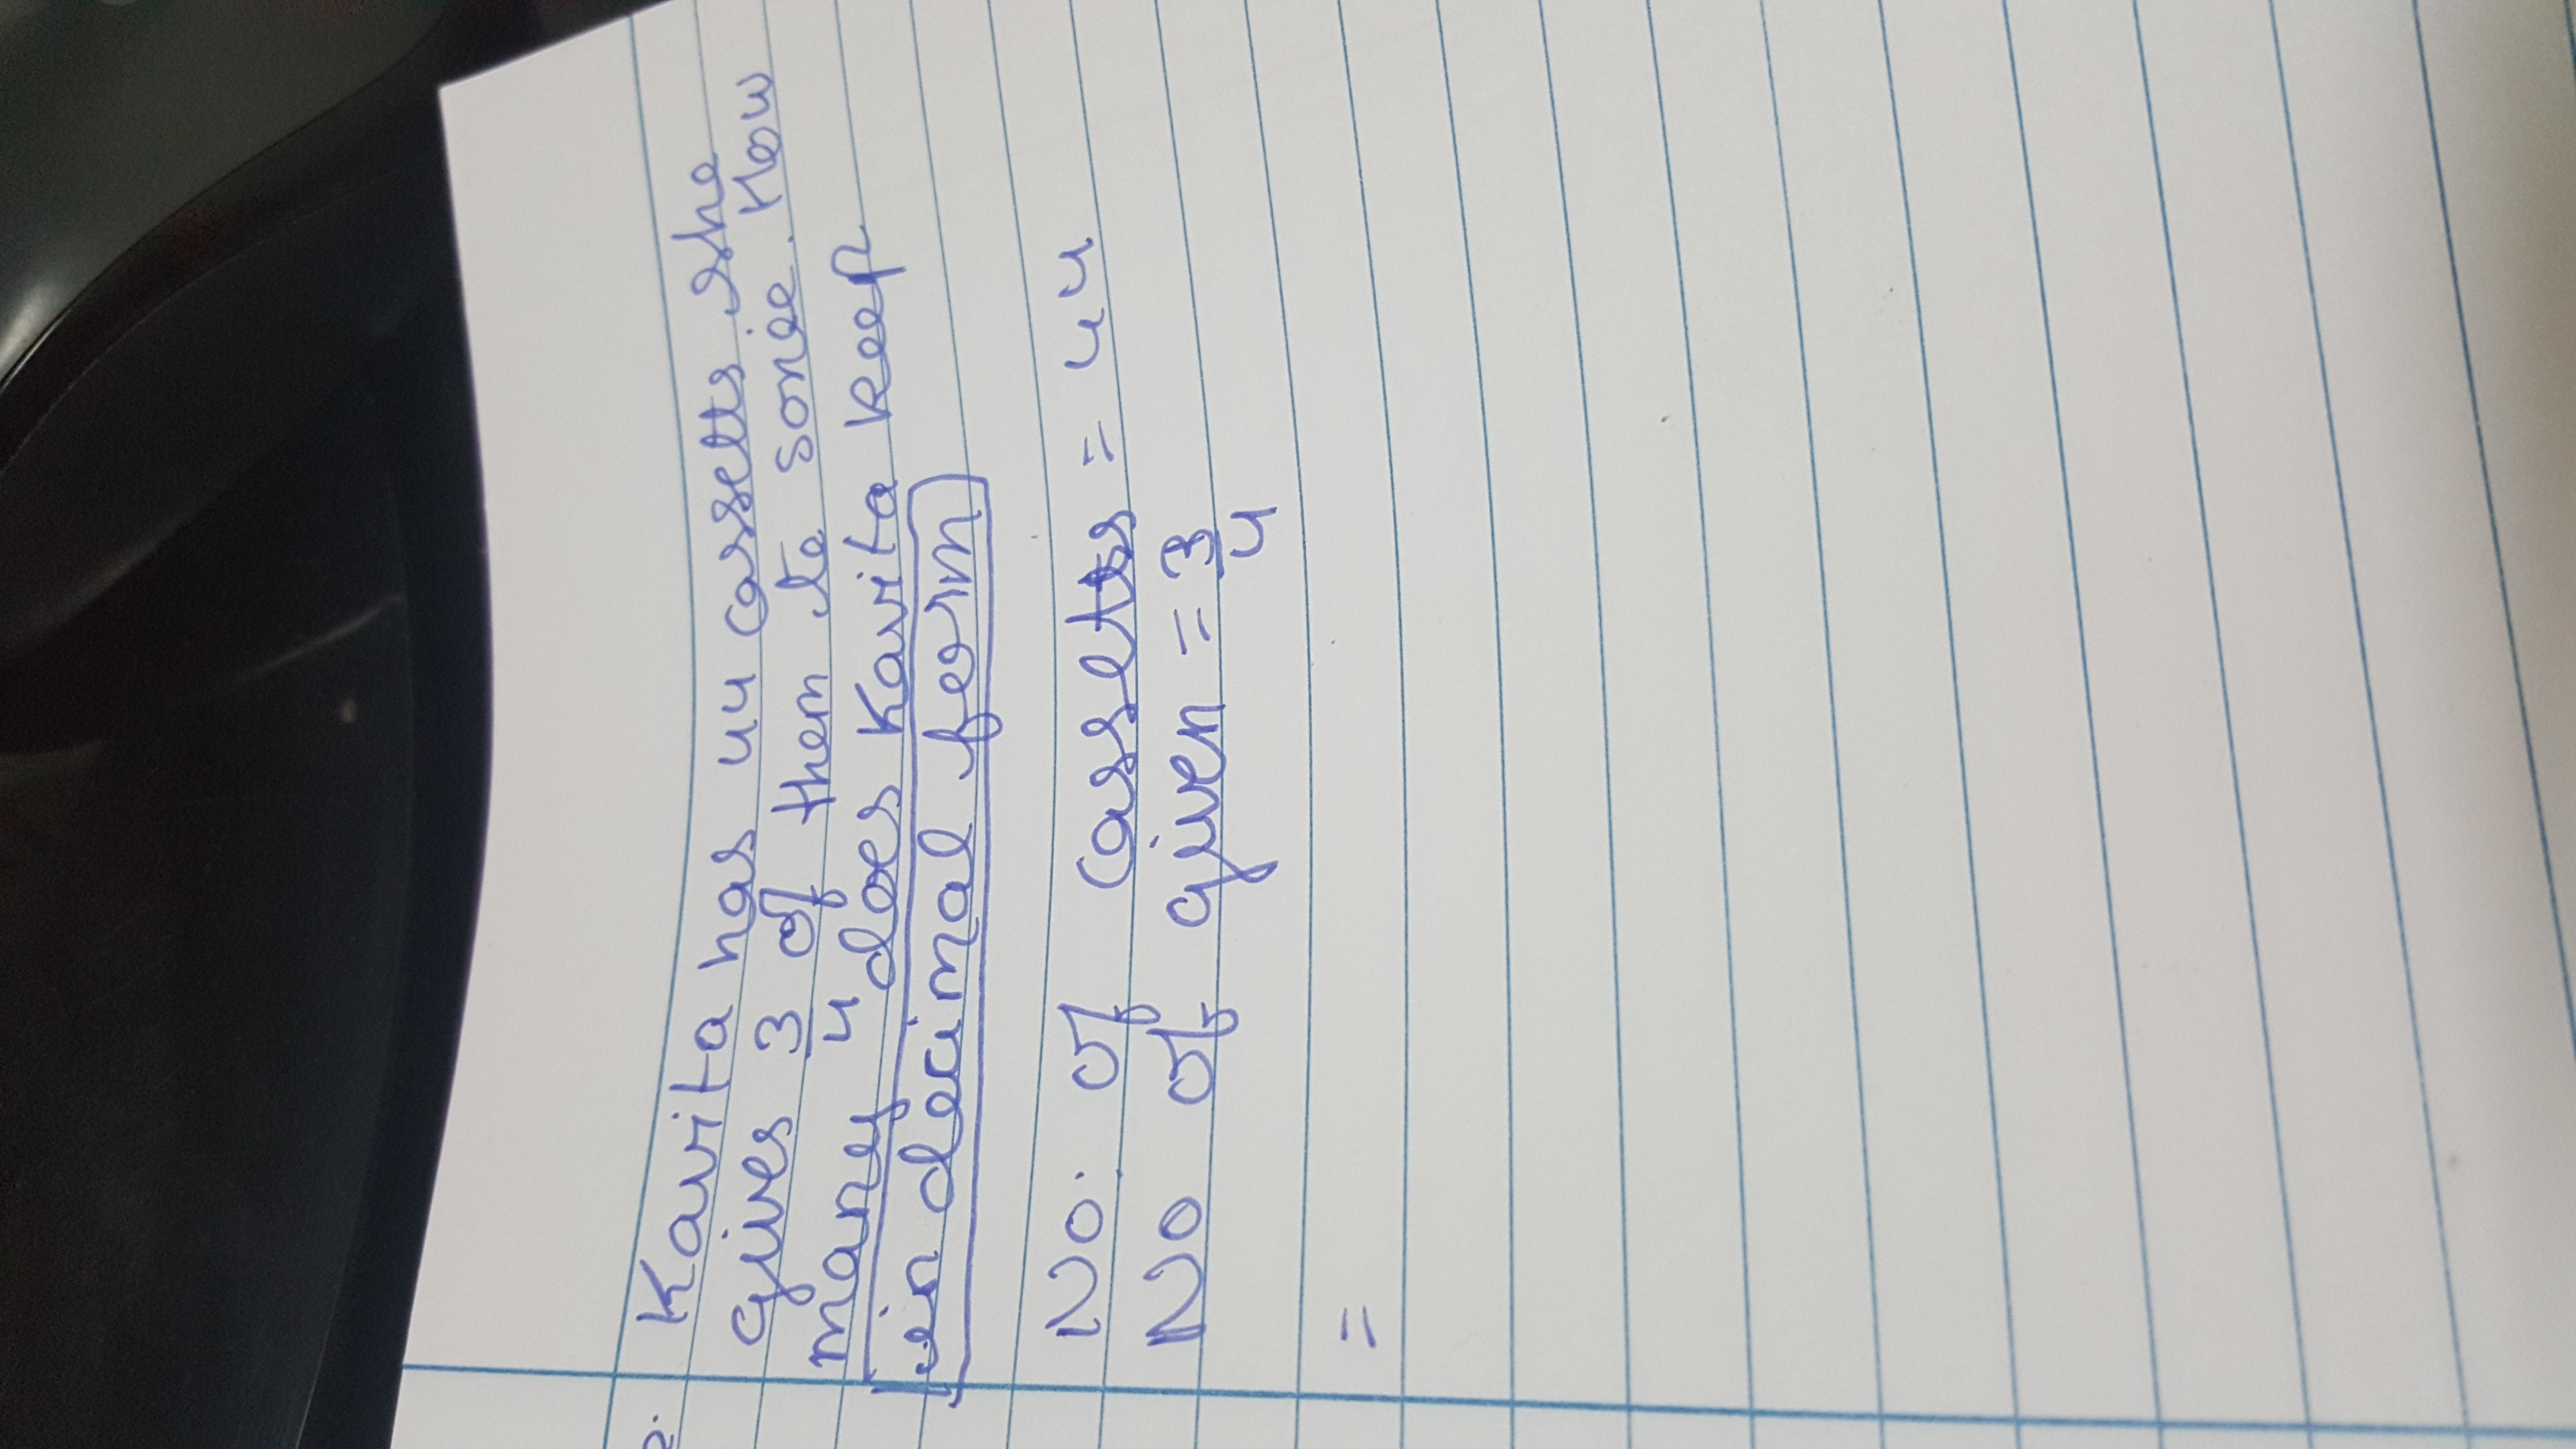 Kavita has 44 cassetts she
gives 3/4 of them to sonie. How
many does Kavita keep
in decimal form
No. of Cassetts = 44
No of given = 3/4
=